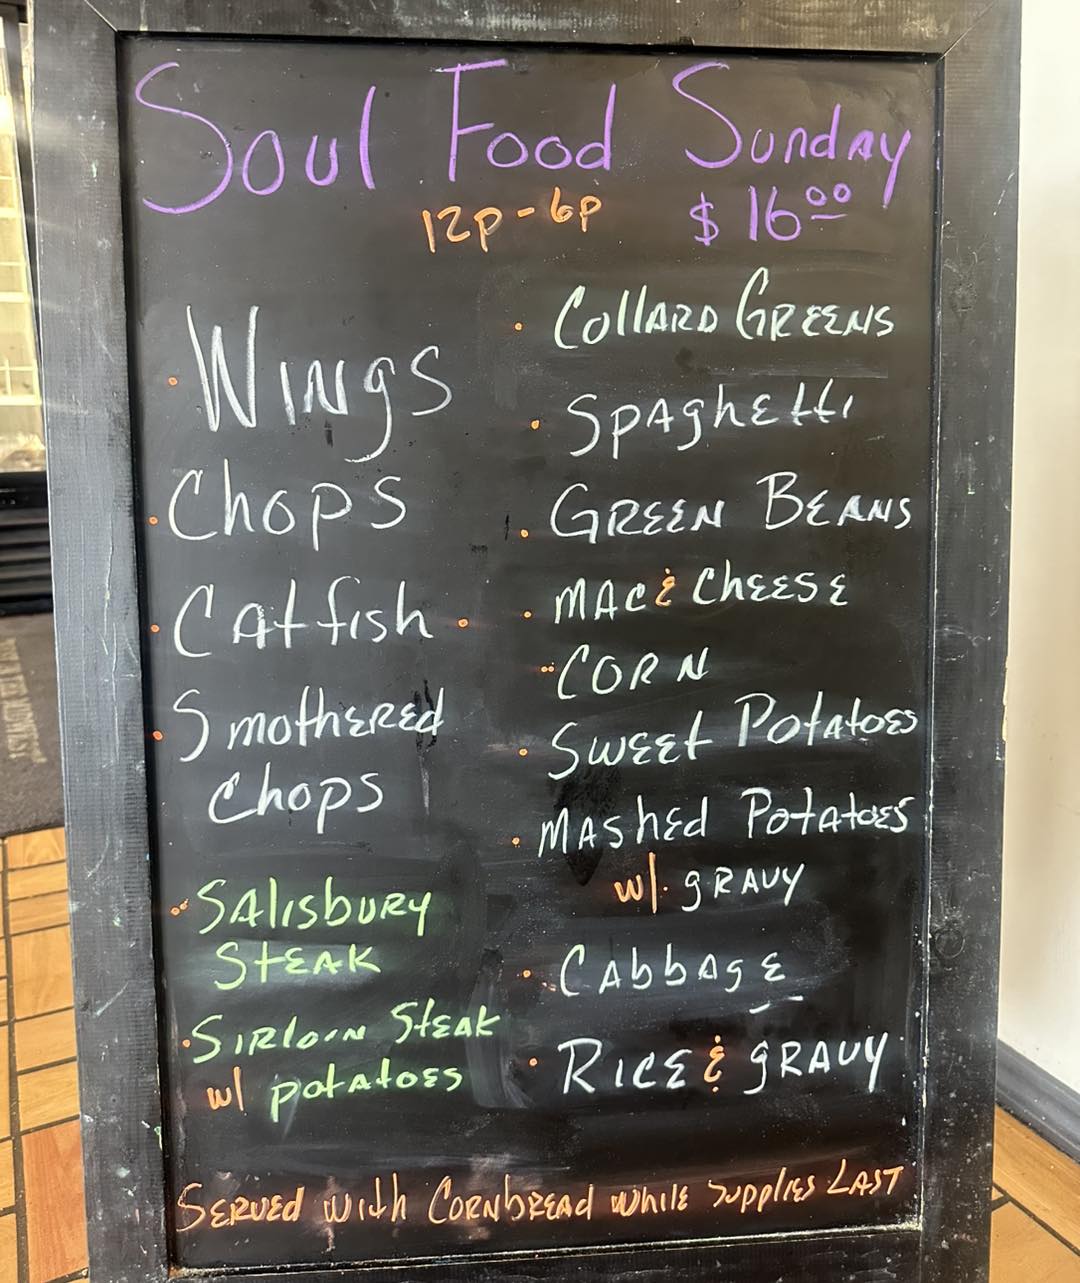 Soul Food Sunday
12p - 6p $16.00
• Wings
• Chops
• Catfish •
• Smothered
Chops
• Salisbury
Steak
• Sirloin Steak
w/ potatoes
• Collard Greens
• Spaghetti
• Green Beans
• Mac & Cheese
• Corn
• Sweet Potatoes
• Mashed Potatoes
w/. gravy
• Cabbage
• Rice & gravy
Served with Cornbread While Supplies Last